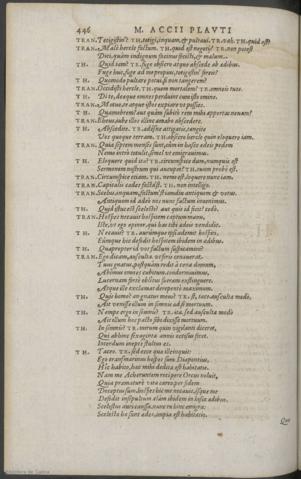 446 M. ACCII PLAVTI
TRAN. Tetigistin'? TH. tetigi, inquam, & pultaui. TRA. vah. TH. quid est?
TRAN. Male hercle factum. TH. quid est negoti? TRA. non potest
Dici, quàm indignum facinus fecisti, & malum.
TH. Quid iam? TR. fuge obsecro atque abscede ab ædibus.
Fuge huc, fuge ad me propius, tetigistin' fores?
TH. Quomodo pultare potui, si non tangerem?
TRAN. Occidisti hercle. TH. quem mortalem? TR. omneis tuos.
TH. Di te, deæque omnes perduint cum isto omine.
TRAN. Metuo te atque istos expiare vt possies.
TH. Quamobrem? aut quam subitò rem mihi apportas nouam?
TRAN. Eheus, iube illos illinc amabo abscedere.
TH. Abscedite. TR. ædis ne attigatis, tangite
Vos quoque terram. TH. obsecro hercle quin eloquere iam.
TRAN. Quia septem menses sunt, cùm in hasce ædeis pedem
Nemo intrò tetulit, semel vt emigrauimus.
TH. Eloquere quid ita? TR. circumspice dum, numquis est
Sermonem nostrum qui aucupet? TH. tutum probè est.
TRAN. Circumspice etiam. TH. nemo est, loquere nunc iam.
TRAN. Capitalis cædes facta est. TH. non intelligo.
TRAN. Scelus, inquam, factum est iamdiu antiquom & vetus.
Antiquom id adeò nos nunc factum inuenimus.
TH. Quid istuc est scelesti? aut quis id fecit? cedò.
TRAN. Hospes necauit hospitem captum manu,
Iste, vt ego opinor, qui has tibi ædeis vendidit.
TH. Necauit? TR. aurumque ei ademit hospiti,
Eúmque hic defodit hospitem ibidem in ædibus.
TH. Quapropter id vos factum suspicamini?
TRAN. Ego dicam, ausculta. vt foris cœnauerat,
Tuus gnatus, postquàm redit à cœna domum,
Abimus omnes cubitum, condormiuimus,
Lucernam fortè oblitus fueram exstinguere.
Atque ille exclamat derepentè maximum.
TH. Quis homo? an gnatus meus? TR. st, tace, ausculta modò,
Ait venisse illum in somnis ad se mortuum.
TH. Nempe ergo in somnis? TR. ita. sed ausculta modò
Ait illum hoc pacto sibi dixisse mortuum.
TH. In somnis? TR. mirum quin vigilanti diceret,
Qui abhinc sexaginta annis occisus foret.
Interdum ineptè stultus es.
TH. Taceo. TR. sed ecce quæ ille inquit:
Ego transmarinus hospes sum Diapontius,
Hic habito, hæc mihi dedita est habitatio.
Nam me Acheruntem recipere Orcus noluit,
Quia præmaturè vita careo. per fidem
Deceptus sum. hospes hic me necauit, isque me
Defodit insepultum clàm ibidem in hisce ædibus.
Scelestus auri causa. nunc tu hinc emigra:
Scelestæ hæ sunt ædes, impia est habitatio.
Quæ